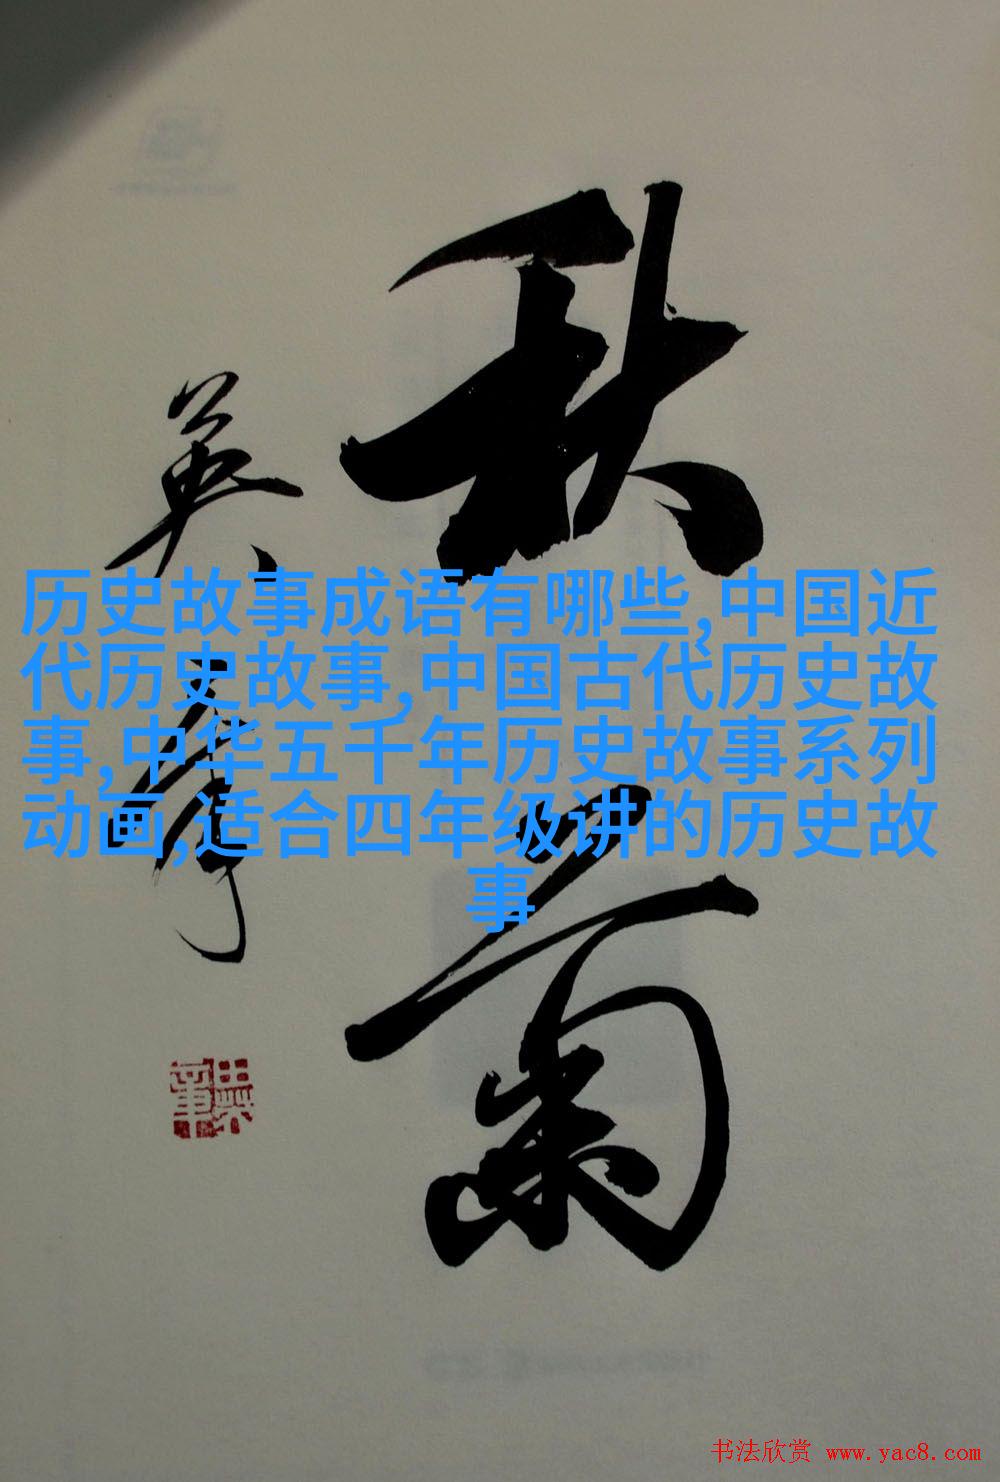 秋菊
历史故事成语有哪些,中国近
代历史故事,中国古代历史故
事,中华五千年历史故事系列
动画,适合四年级讲的历史故
事
书法欣赏 www.yac8.com